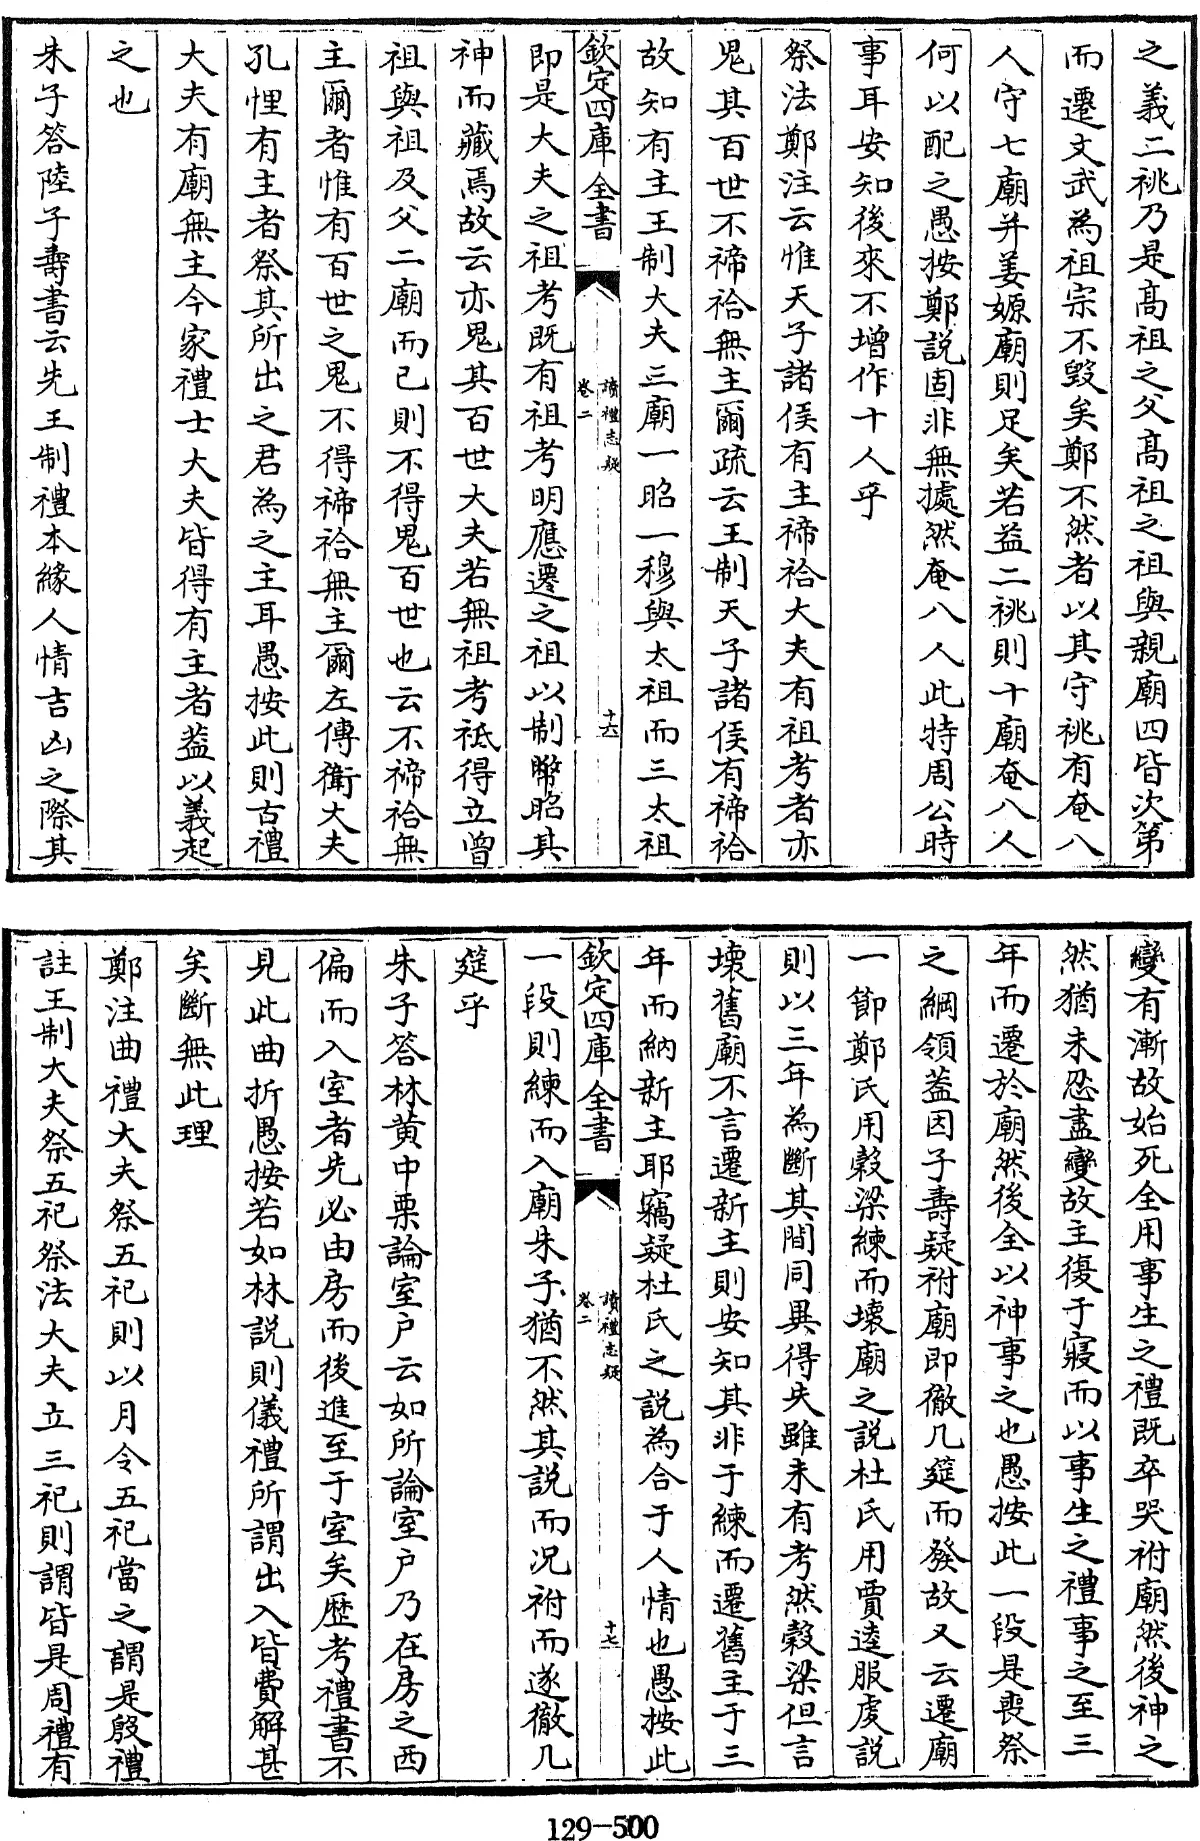 之義二祧乃是髙祖之父髙祖之祖與親廟四皆次第
而遷文武為祖宗不毁矣鄭不然者以其守祧有奄八
人守七廟并姜嫄廟則足矣若益二祧則十廟奄八人
何以配之愚按鄭説固非無據然奄八人此特周公時
事耳安知後來不增作十人乎
祭法鄭注云惟天子諸侯有主禘祫大夫有祖考者亦
鬼其百世不禘祫無主爾疏云王制天子諸侯有禘祫
故知有主王制大夫三廟一昭一穆與太祖而三太祖
欽定四庫全書
讀禮志疑
卷二
十六
即是大夫之祖考既有祖考明應遷之祖以制幣昭其
神而藏焉故云亦鬼其百世大夫若無祖考祗得立曽
祖與祖及父二廟而已則不得鬼百世也云不禘祫無
主爾者惟有百世之鬼不得禘祫無主爾左傳衛大夫
孔悝有主者祭其所出之君為之主耳愚按此則古禮
大夫有廟無主今家禮士大夫皆得有主者葢以義起
之也
朱子答陸子壽書云先王制禮本緣人情吉凶之際其
變有漸故始死全用事生之禮既卒哭祔廟然後神之
然猶未忍盡變故主復于寢而以事生之禮事之至三
年而遷於廟然後全以神事之也愚按此一段是喪祭
之綱領葢因子壽疑祔廟即徹几筵而發故又云遷廟
一節鄭氏用榖梁練而壞廟之説杜氏用賈逵服虔説
則以三年為斷其間同異得失雖未有考然榖梁但言
壞舊廟不言遷新主則安知其非于練而遷舊主于三
年而納新主耶竊疑杜氏之説為合于人情也愚按此
欽定四庫全書
讀禮志疑
卷二
十七
一段則練而入廟朱子猶不然其説而况祔而遂徹几
筵乎
朱子答林黄中栗論室户云如所論室户乃在房之西
偏而入室者先必由房而後進至于室矣歴考禮書不
見此曲折愚按若如林説則儀禮所謂出入皆費解甚
矣斷無此理
鄭注曲禮大夫祭五祀則以月令五祀當之謂是殷禮
註王制大夫祭五祀祭法大夫立三祀則謂皆是周禮有
129-500